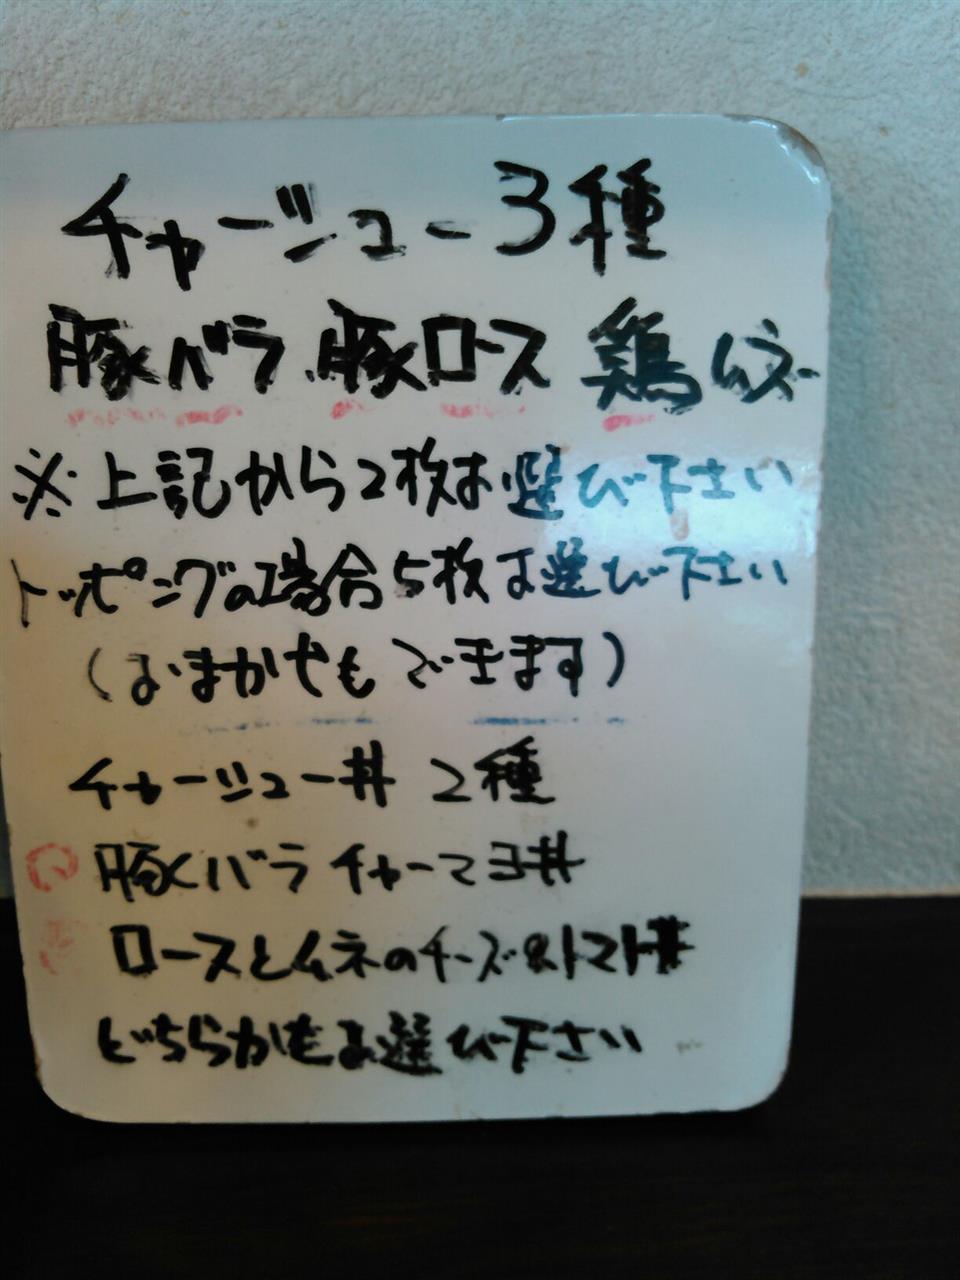 チャーシュー3種
豚バラ 豚ロース 鶏ムネ
※上記から2枚お選び下さい
トッピングの場合5枚お選び下さい
(おまかせもできます)
チャーシュー丼 2種
豚バラチャーマヨ丼
ロースとムネのチーズ&トマト丼
どちらかをお選び下さい